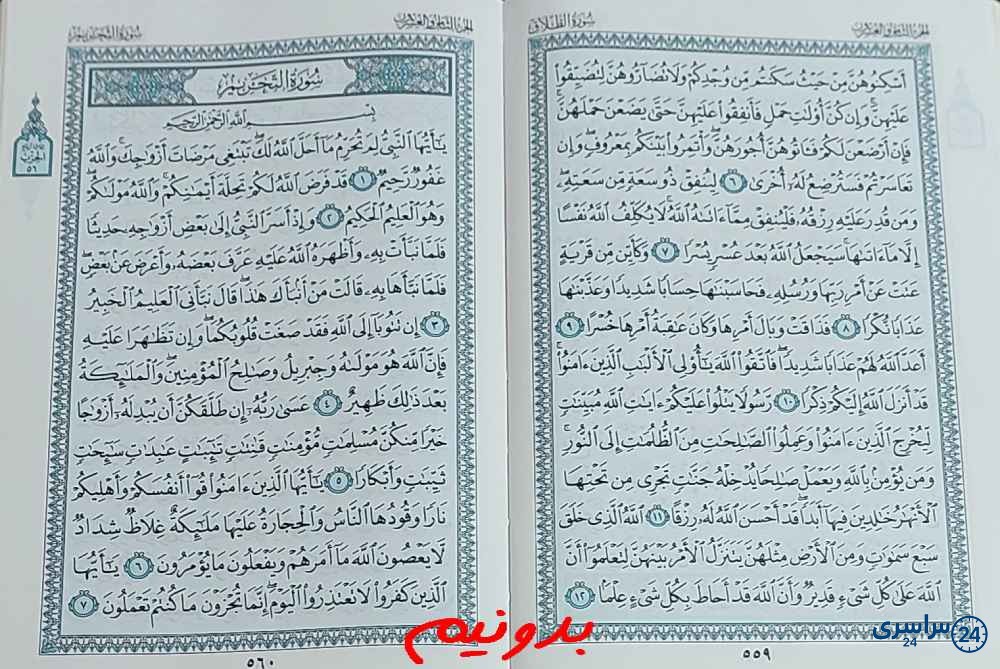 الجزء الثامن والعشرون
سورة الطلاق
أَسْكِنُوهُنَّ مِنْ حَيْثُ سَكَنتُم مِّن وُجْدِكُمْ وَلَا تُضَآرُّوهُنَّ لِتُضَيِّقُوا۟
عَلَيْهِنَّ ۚ وَإِن كُنَّ أُو۟لَـٰتِ حَمْلٍ فَأَنفِقُوا۟ عَلَيْهِنَّ حَتَّىٰ يَضَعْنَ حَمْلَهُنَّ ۚ
فَإِنْ أَرْضَعْنَ لَكُمْ فَـَٔاتُوهُنَّ أُجُورَهُنَّ ۖ وَأْتَمِرُوا۟ بَيْنَكُم بِمَعْرُوفٍ ۖ وَإِن
تَعَاسَرْتُمْ فَسَتُرْضِعُ لَهُۥٓ أُخْرَىٰ ٦ لِيُنفِقْ ذُو سَعَةٍ مِّن سَعَتِهِۦ ۖ
وَمَن قُدِرَ عَلَيْهِ رِزْقُهُۥ فَلْيُنفِقْ مِمَّآ ءَاتَىٰهُ ٱللَّهُ ۚ لَا يُكَلِّفُ ٱللَّهُ نَفْسًا
إِلَّا مَآ ءَاتَىٰهَا ۚ سَيَجْعَلُ ٱللَّهُ بَعْدَ عُسْرٍ يُسْرًا ٧ وَكَأَيِّن مِّن قَرْيَةٍ
عَتَتْ عَنْ أَمْرِ رَبِّهَا وَرُسُلِهِۦ فَحَاسَبْنَـٰهَا حِسَابًا شَدِيدًا وَعَذَّبْنَـٰهَا
عَذَابًا نُّكْرًا ٨ فَذَاقَتْ وَبَالَ أَمْرِهَا وَكَانَ عَـٰقِبَةُ أَمْرِهَا خُسْرًا ٩
أَعَدَّ ٱللَّهُ لَهُمْ عَذَابًا شَدِيدًا ۖ فَٱتَّقُوا۟ ٱللَّهَ يَـٰٓأُو۟لِى ٱلْأَلْبَـٰبِ ٱلَّذِينَ ءَامَنُوا۟ ۚ
قَدْ أَنزَلَ ٱللَّهُ إِلَيْكُمْ ذِكْرًا ١٠ رَّسُولًا يَتْلُوا۟ عَلَيْكُمْ ءَايَـٰتِ ٱللَّهِ مُبَيِّنَـٰتٍ
لِّيُخْرِجَ ٱلَّذِينَ ءَامَنُوا۟ وَعَمِلُوا۟ ٱلصَّـٰلِحَـٰتِ مِنَ ٱلظُّلُمَـٰتِ إِلَى ٱلنُّورِ ۚ
وَمَن يُؤْمِنۢ بِٱللَّهِ وَيَعْمَلْ صَـٰلِحًا يُدْخِلْهُ جَنَّـٰتٍ تَجْرِى مِن تَحْتِهَا
ٱلْأَنْهَـٰرُ خَـٰلِدِينَ فِيهَآ أَبَدًا ۖ قَدْ أَحْسَنَ ٱللَّهُ لَهُۥ رِزْقًا ١١ ٱللَّهُ ٱلَّذِى خَلَقَ
سَبْعَ سَمَـٰوَٰتٍ وَمِنَ ٱلْأَرْضِ مِثْلَهُنَّ يَتَنَزَّلُ ٱلْأَمْرُ بَيْنَهُنَّ لِتَعْلَمُوٓا۟ أَنَّ
ٱللَّهَ عَلَىٰ كُلِّ شَىْءٍ قَدِيرٌ وَأَنَّ ٱللَّهَ قَدْ أَحَاطَ بِكُلِّ شَىْءٍ عِلْمًۢا ١٢
٥٥٩
الجزء الثامن والعشرون
سورة التحريم
سورة التحريم
بِسْمِ ٱللَّهِ ٱلرَّحْمَـٰنِ ٱلرَّحِيمِ
يَـٰٓأَيُّهَا ٱلنَّبِىُّ لِمَ تُحَرِّمُ مَآ أَحَلَّ ٱللَّهُ لَكَ ۖ تَبْتَغِى مَرْضَاتَ أَزْوَٰجِكَ ۚ وَٱللَّهُ
غَفُورٌ رَّحِيمٌ ١ قَدْ فَرَضَ ٱللَّهُ لَكُمْ تَحِلَّةَ أَيْمَـٰنِكُمْ ۚ وَٱللَّهُ مَوْلَىٰكُمْ ۖ
وَهُوَ ٱلْعَلِيمُ ٱلْحَكِيمُ ٢ وَإِذْ أَسَرَّ ٱلنَّبِىُّ إِلَىٰ بَعْضِ أَزْوَٰجِهِۦ حَدِيثًا
فَلَمَّا نَبَّأَتْ بِهِۦ وَأَظْهَرَهُ ٱللَّهُ عَلَيْهِ عَرَّفَ بَعْضَهُۥ وَأَعْرَضَ عَنۢ بَعْضٍ ۖ
فَلَمَّا نَبَّأَهَا بِهِۦ قَالَتْ مَنْ أَنۢبَأَكَ هَـٰذَا ۖ قَالَ نَبَّأَنِىَ ٱلْعَلِيمُ ٱلْخَبِيرُ
٣ إِن تَتُوبَآ إِلَى ٱللَّهِ فَقَدْ صَغَتْ قُلُوبُكُمَا ۖ وَإِن تَظَـٰهَرَا عَلَيْهِ
فَإِنَّ ٱللَّهَ هُوَ مَوْلَىٰهُ وَجِبْرِيلُ وَصَـٰلِحُ ٱلْمُؤْمِنِينَ ۖ وَٱلْمَلَـٰٓئِكَةُ
بَعْدَ ذَٰلِكَ ظَهِيرٌ ٤ عَسَىٰ رَبُّهُۥٓ إِن طَلَّقَكُنَّ أَن يُبْدِلَهُۥٓ أَزْوَٰجًا
خَيْرًا مِّنكُنَّ مُسْلِمَـٰتٍ مُّؤْمِنَـٰتٍ قَـٰنِتَـٰتٍ تَـٰٓئِبَـٰتٍ عَـٰبِدَٰتٍ سَـٰٓئِحَـٰتٍ
ثَيِّبَـٰتٍ وَأَبْكَارًا ٥ يَـٰٓأَيُّهَا ٱلَّذِينَ ءَامَنُوا۟ قُوٓا۟ أَنفُسَكُمْ وَأَهْلِيكُمْ
نَارًا وَقُودُهَا ٱلنَّاسُ وَٱلْحِجَارَةُ عَلَيْهَا مَلَـٰٓئِكَةٌ غِلَاظٌ شِدَادٌ
لَّا يَعْصُونَ ٱللَّهَ مَآ أَمَرَهُمْ وَيَفْعَلُونَ مَا يُؤْمَرُونَ ٦ يَـٰٓأَيُّهَا
ٱلَّذِينَ كَفَرُوا۟ لَا تَعْتَذِرُوا۟ ٱلْيَوْمَ ۖ إِنَّمَا تُجْزَوْنَ مَا كُنتُمْ تَعْمَلُونَ ٧
٥٦٠
الحزب
٥٦
بدونیم
سراسری 24
24